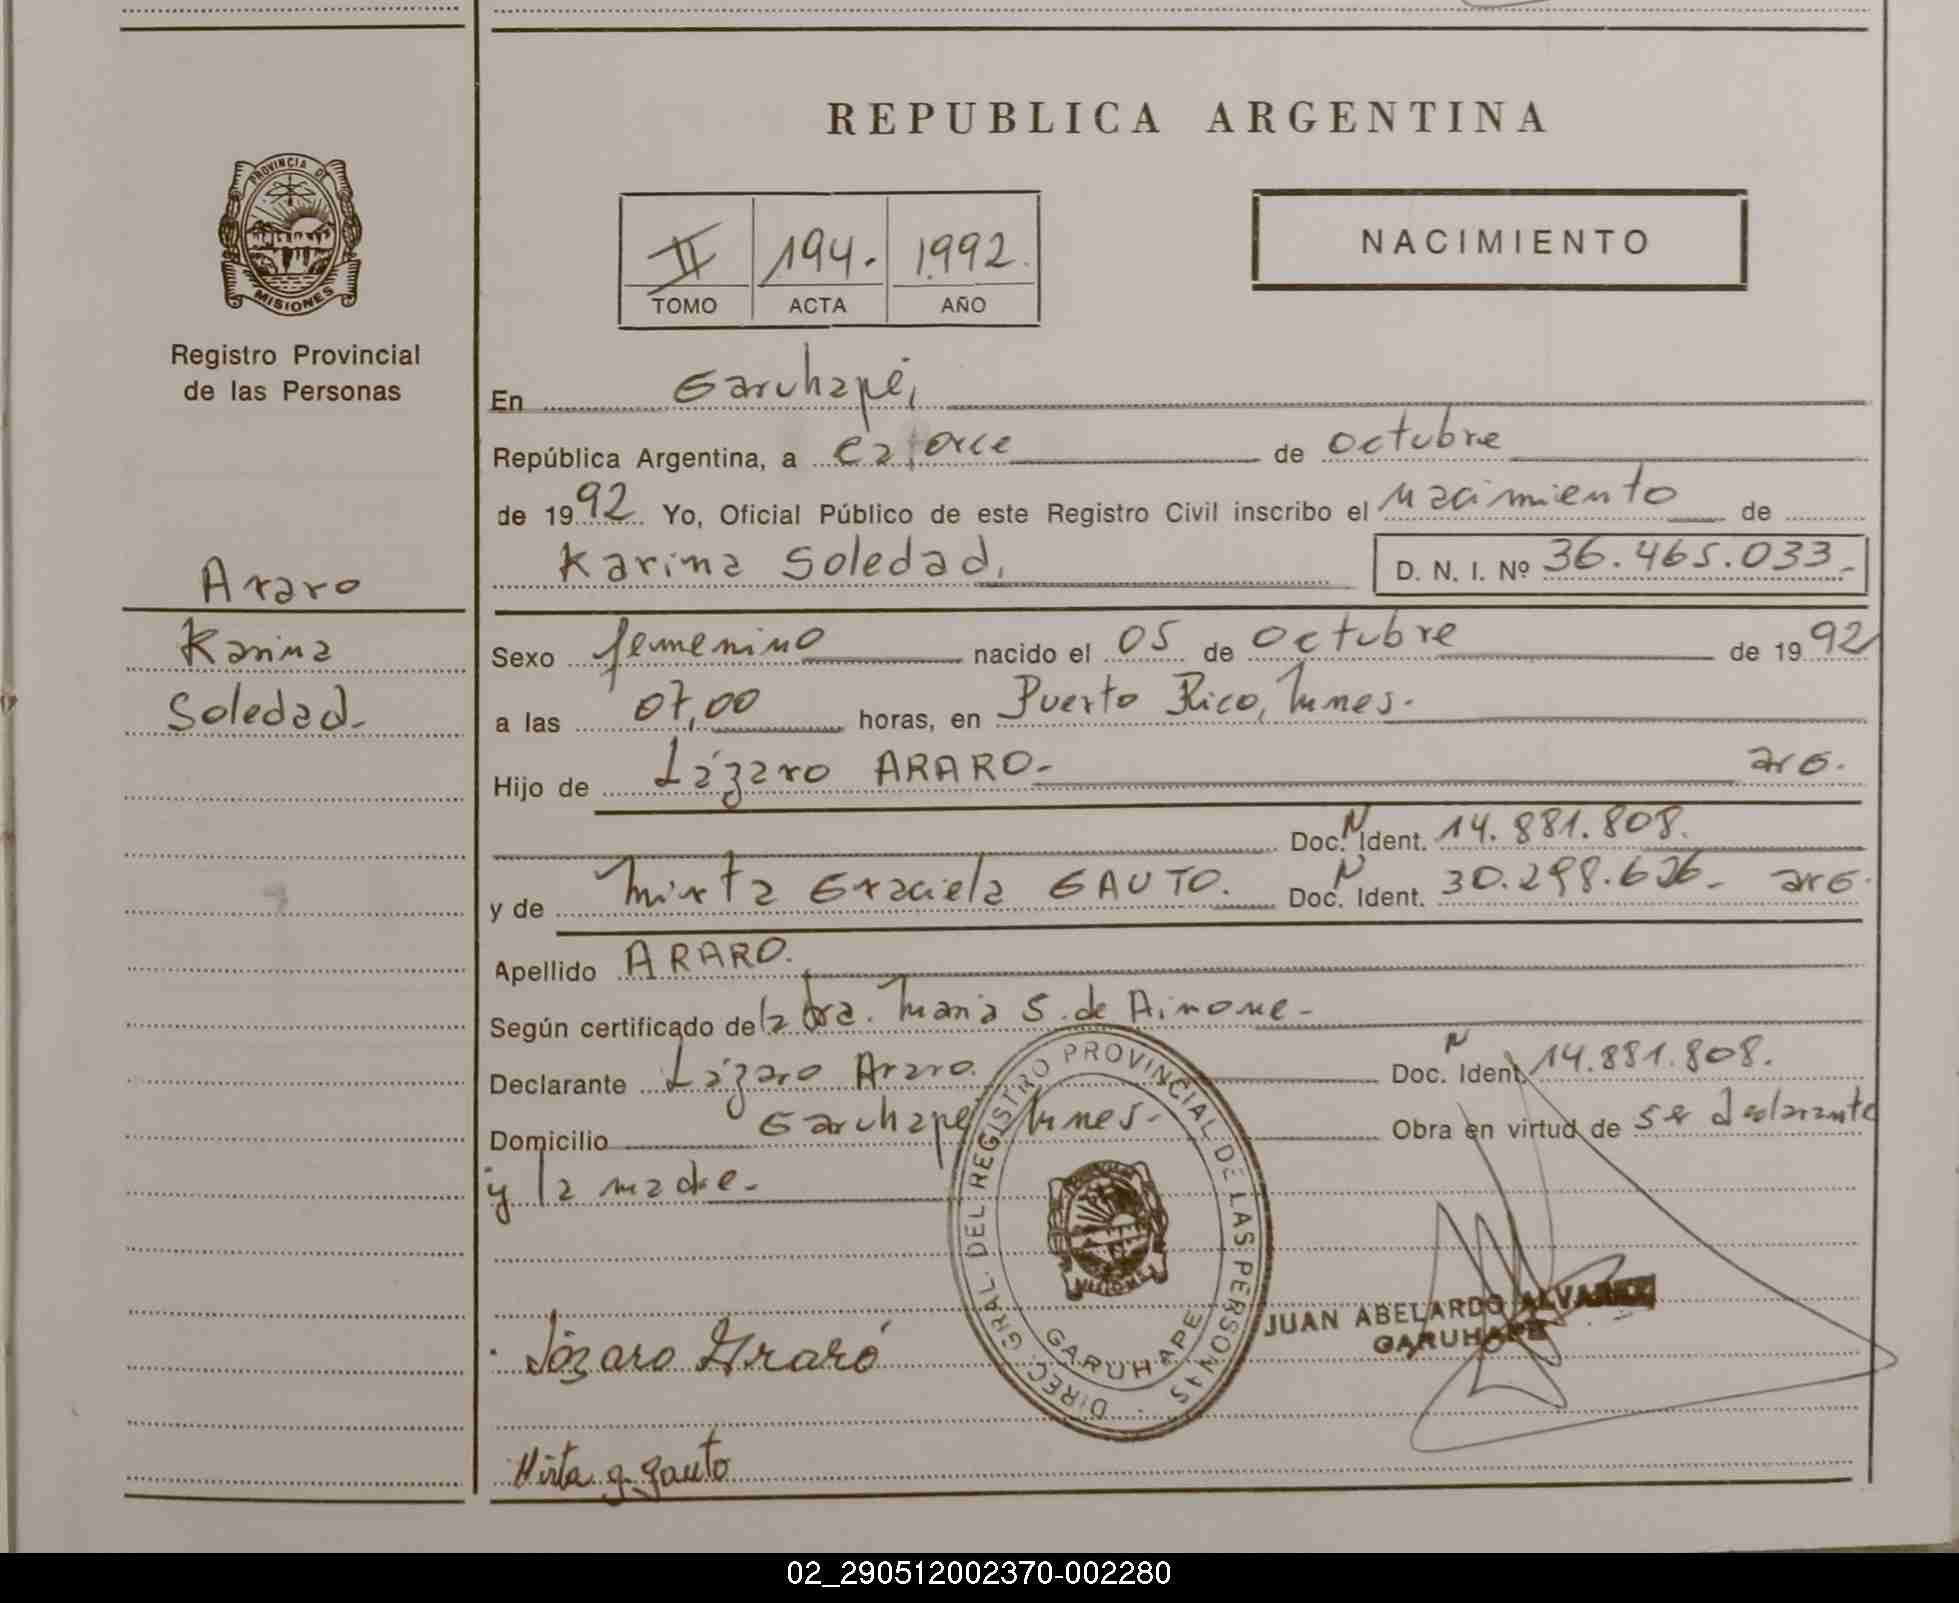 REPUBLICA ARGENTINA
PROVINCIA DE
MISIONES
Registro Provincial
de las Personas
II 194. 1992.
TOMO ACTA AÑO
NACIMIENTO
En Garuhapé,
República Argentina, a catorce de octubre
de 1992. Yo, Oficial Público de este Registro Civil inscribo el nacimiento de
Karina Soledad. D. N. I. Nº 36.465.033.-
Araro
Karina
Soledad.-
Sexo femenino nacido el 05 de octubre de 1992
a las 07,00 horas, en Puerto Rico, Mnes.-
Hijo de Lázaro ARARO.- arg.
Doc. N Ident. 14.881.808.
y de Mirta Graciela GAUTO. Doc. N Ident. 30.298.626.- arg.
Apellido ARARO.
Según certificado de la Dra. Maria S. de Aimone.-
Declarante Lázaro Araro. Doc. N Ident. 14.881.808.
Domicilio Garuhapé Mnes.- Obra en virtud de ser declarante
y la madre.-
DIREC. GRAL. DEL REGISTRO PROVINCIAL DE LAS PERSONAS
GARUHAPE
JUAN ABELARDO ALVAREZ
GARUHAPE
Lázaro Araró
Mirta g. gauto
02_290512002370-002280